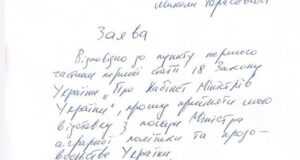 Миколи Тарасовича
Заява
Відповідно до пункту першого
частини першої статті 18 Закону
України „Про Кабінет Міністрів
України", прошу прийняти мою
відставку з посади Міністра
аграрної політики та продо-
вольства України.